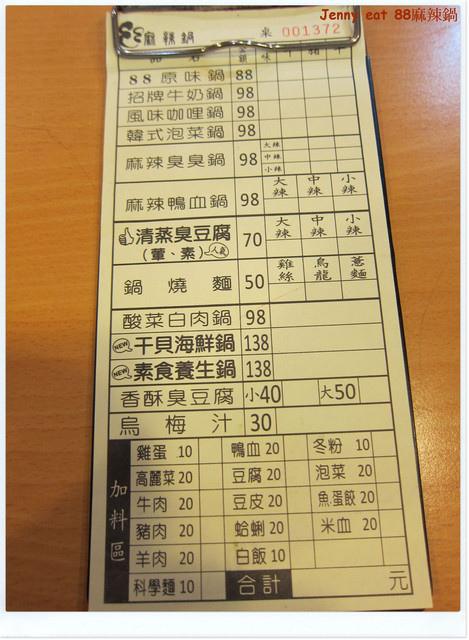 Jenny eat 88麻辣鍋
88麻辣鍋 桌 001372
品 名 金額 味
88原味鍋 88
招牌牛奶鍋 98
風味咖哩鍋 98
韓式泡菜鍋 98
麻辣臭臭鍋 98 大辣 中辣 小辣
麻辣鴨血鍋 98 大辣 中辣 小辣
清蒸臭豆腐 70 大辣 中辣 小辣
(葷、素) 人氣
鍋燒麵 50 雞絲 烏龍 意麵
酸菜白肉鍋 98
NEW 干貝海鮮鍋 138
NEW 素食養生鍋 138
香酥臭豆腐 小40 大50
烏梅汁 30
加料區
雞蛋 10 鴨血 20 冬粉 10
高麗菜 20 豆腐 20 泡菜 20
牛肉 20 豆皮 20 魚蛋餃 20
豬肉 20 蛤蜊 20 米血 20
羊肉 20 白飯 10
科學麵 10 合計 元